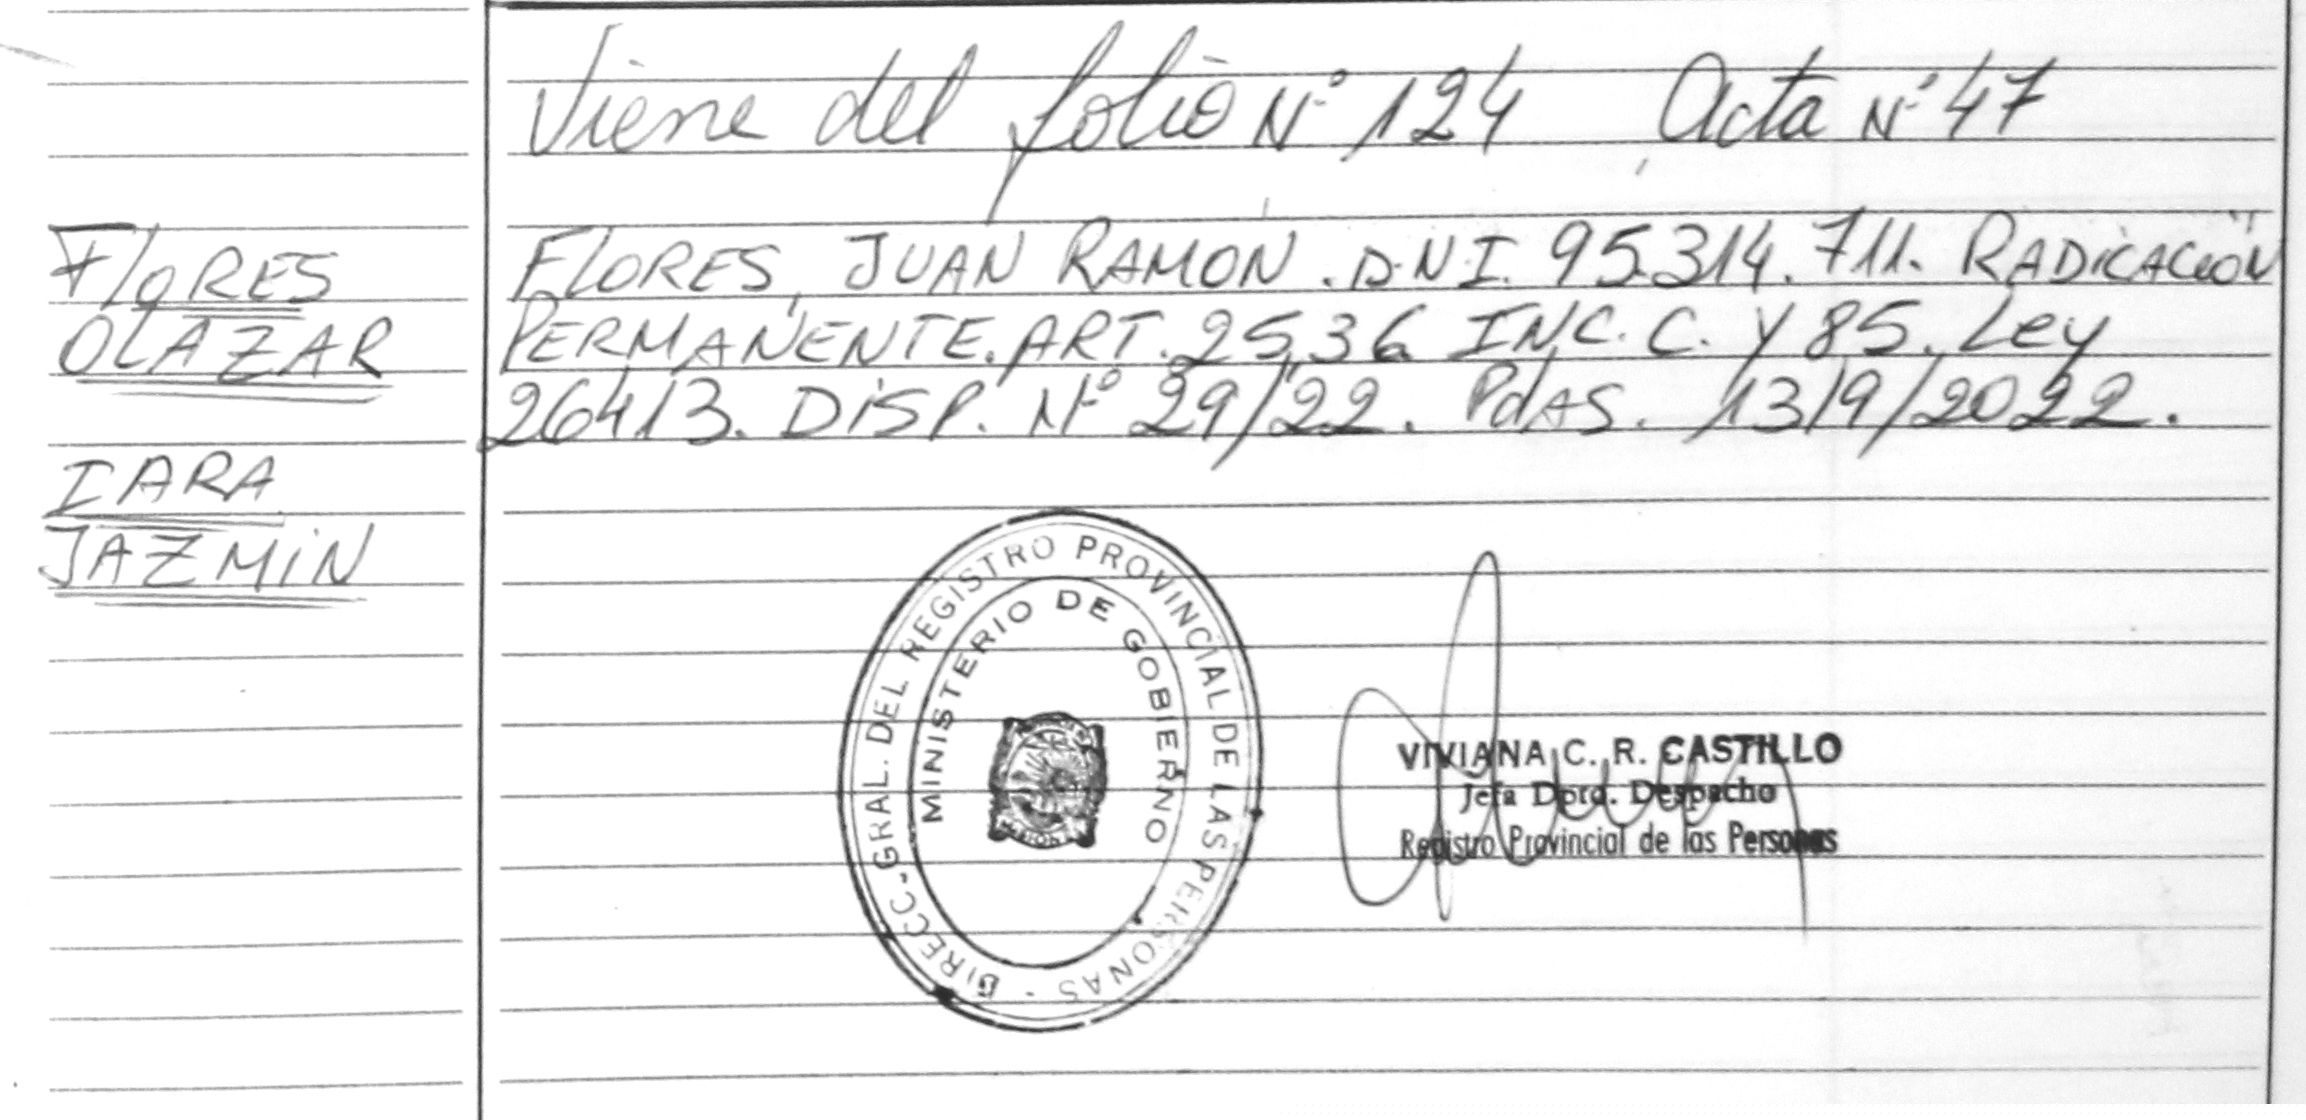 Viene del folio Nº 124 Acta Nº 47
FLORES
OLAZAR
IARA
JAZMIN
FLORES, JUAN RAMON. D.N.I. 95.314.711. RADICACIÓN
PERMANENTE. ART. 25,36 INC. C. Y 85. Ley
26413. DISP. Nº 29/22. PdAS. 13/9/2022.
DIRECC. GRAL. DEL REGISTRO PROVINCIAL DE LAS PERSONAS
MINISTERIO DE GOBIERNO
VIVIANA C. R. CASTILLO
Jefa Dpto. Despacho
Registro Provincial de las Personas